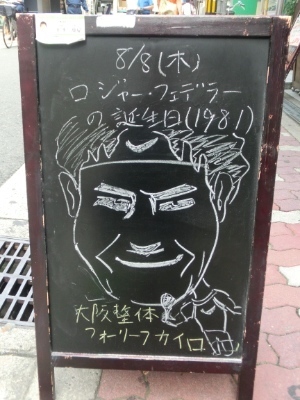 8/8(木)
ロジャー・フェデラー
の誕生日(1981)
大阪整体
フォーリーフカイロ